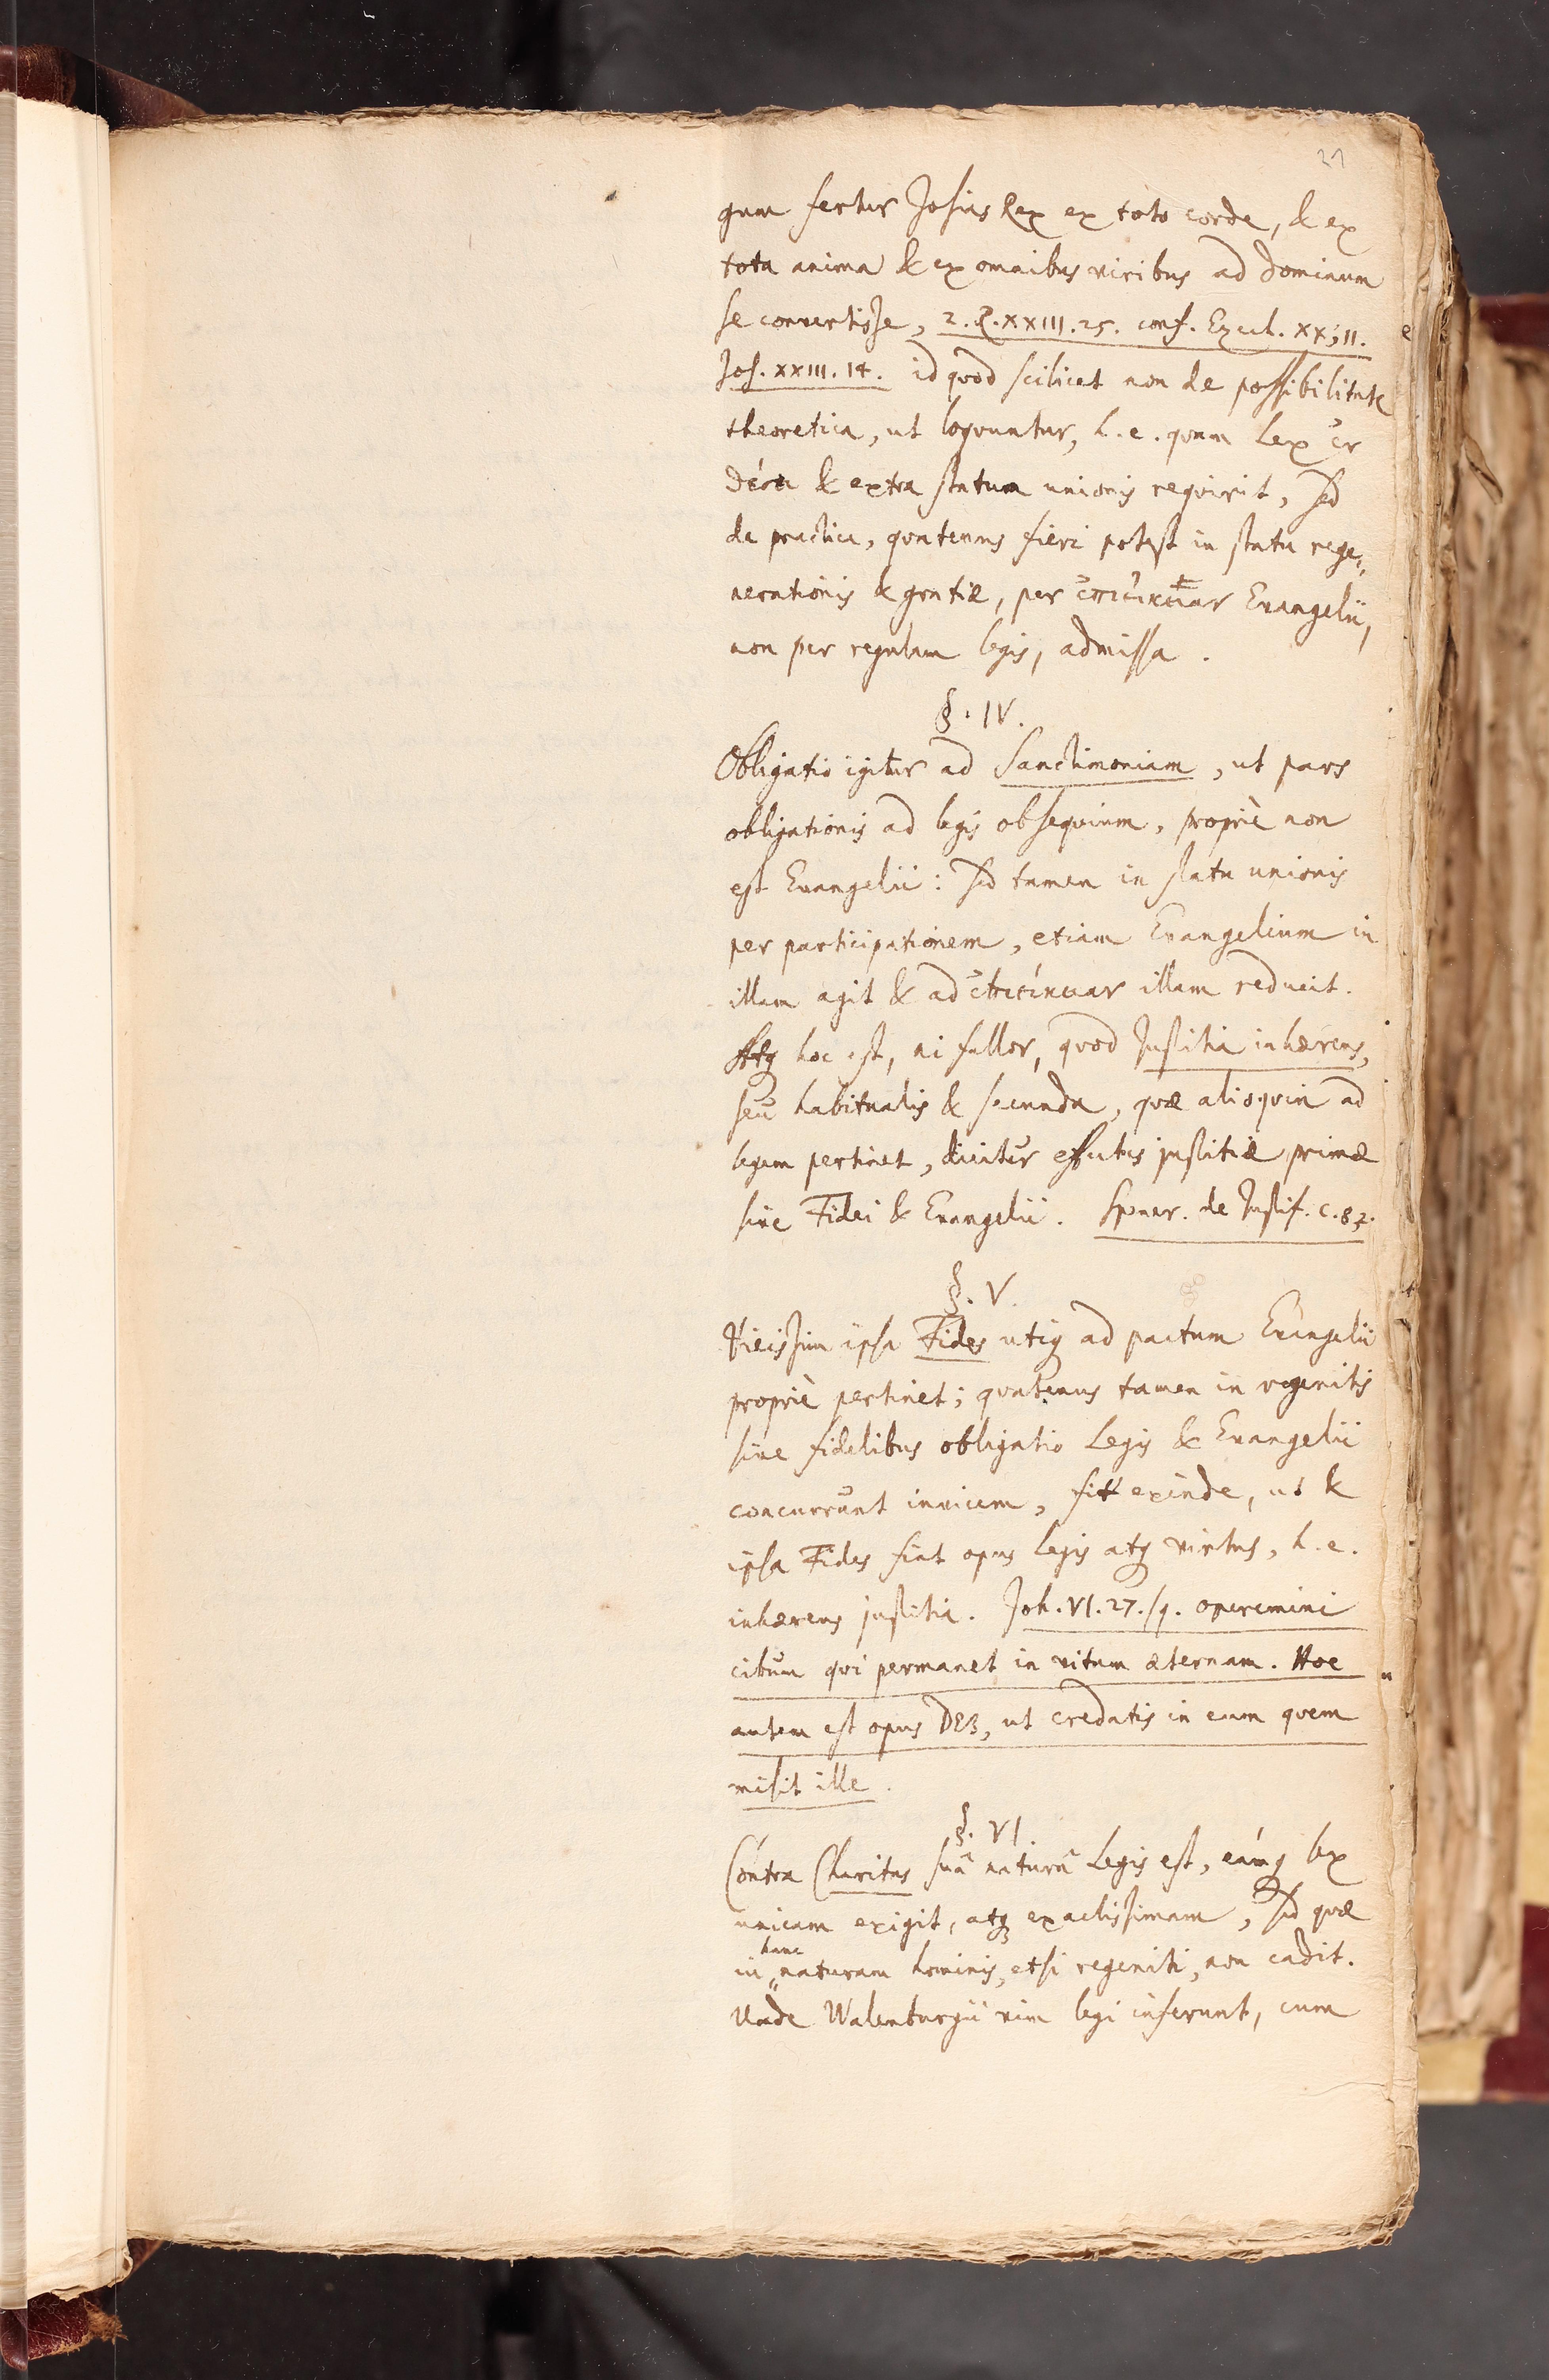 21
quam fertur Josias Rex ex toto corde, & ex
tota anima & ex omnibus viribus ad Dominum
se convertisse, 2. R. XXIII. 25. conf. Ezech. XX, 11.
Jos. XXIII. 14. id quod scilicet non de possibilitate
theoretica, ut loquuntur, h. e. quam Lex ἐν
ἰδέᾳ & extra statum unionis requirit, sed
de practica, quatenus fieri potest in statu rege„
nerationis & gratiæ, per ἐπιείκειαν Evangelii,
non per regulam legis, admissa.
§. IV.
Obligatio igitur ad Sanctimoniam, ut pars
obligationis ad legis obsequium, propriè non
est Evangelii: Sed tamen in statu unionis
per participationem, etiam Evangelium in
illam agit & ad ἐπιείκειαν illam reducit.
Atq hoc est, ni fallor, quod Justitia inhærens,
seu habitualis & secunda, quæ alioquin ad
legem pertinet, dicitur effectus justitiæ primæ
sive Fidei & Evangelii. de Justif. c. 82.
§. V.
Vicissim ipsa Fides utiq ad pactum Evangelii
propriè pertinet; quatenus tamen in regenitis
sive fidelibus obligatio Legis & Evangelii
concurrunt invicem, fit exinde, ut &
ipsa Fides fiat opus Legis atq virtus, h. e.
inhærens justitia. Joh. VI. 27. sq. operemini
cibum qui permanet in vitam æternam. Hoc
autem est opus DEI, ut credatis in eum quem
misit ille.
§. VI.
Contra Charitas suâ naturâ Legis est, eámq lex
unicam exigit, atq exactissimam, sed quæ
in hanc naturam hominis, etsi regeniti, non cadit.
Unde Walenburgii vim legi inferunt, cum